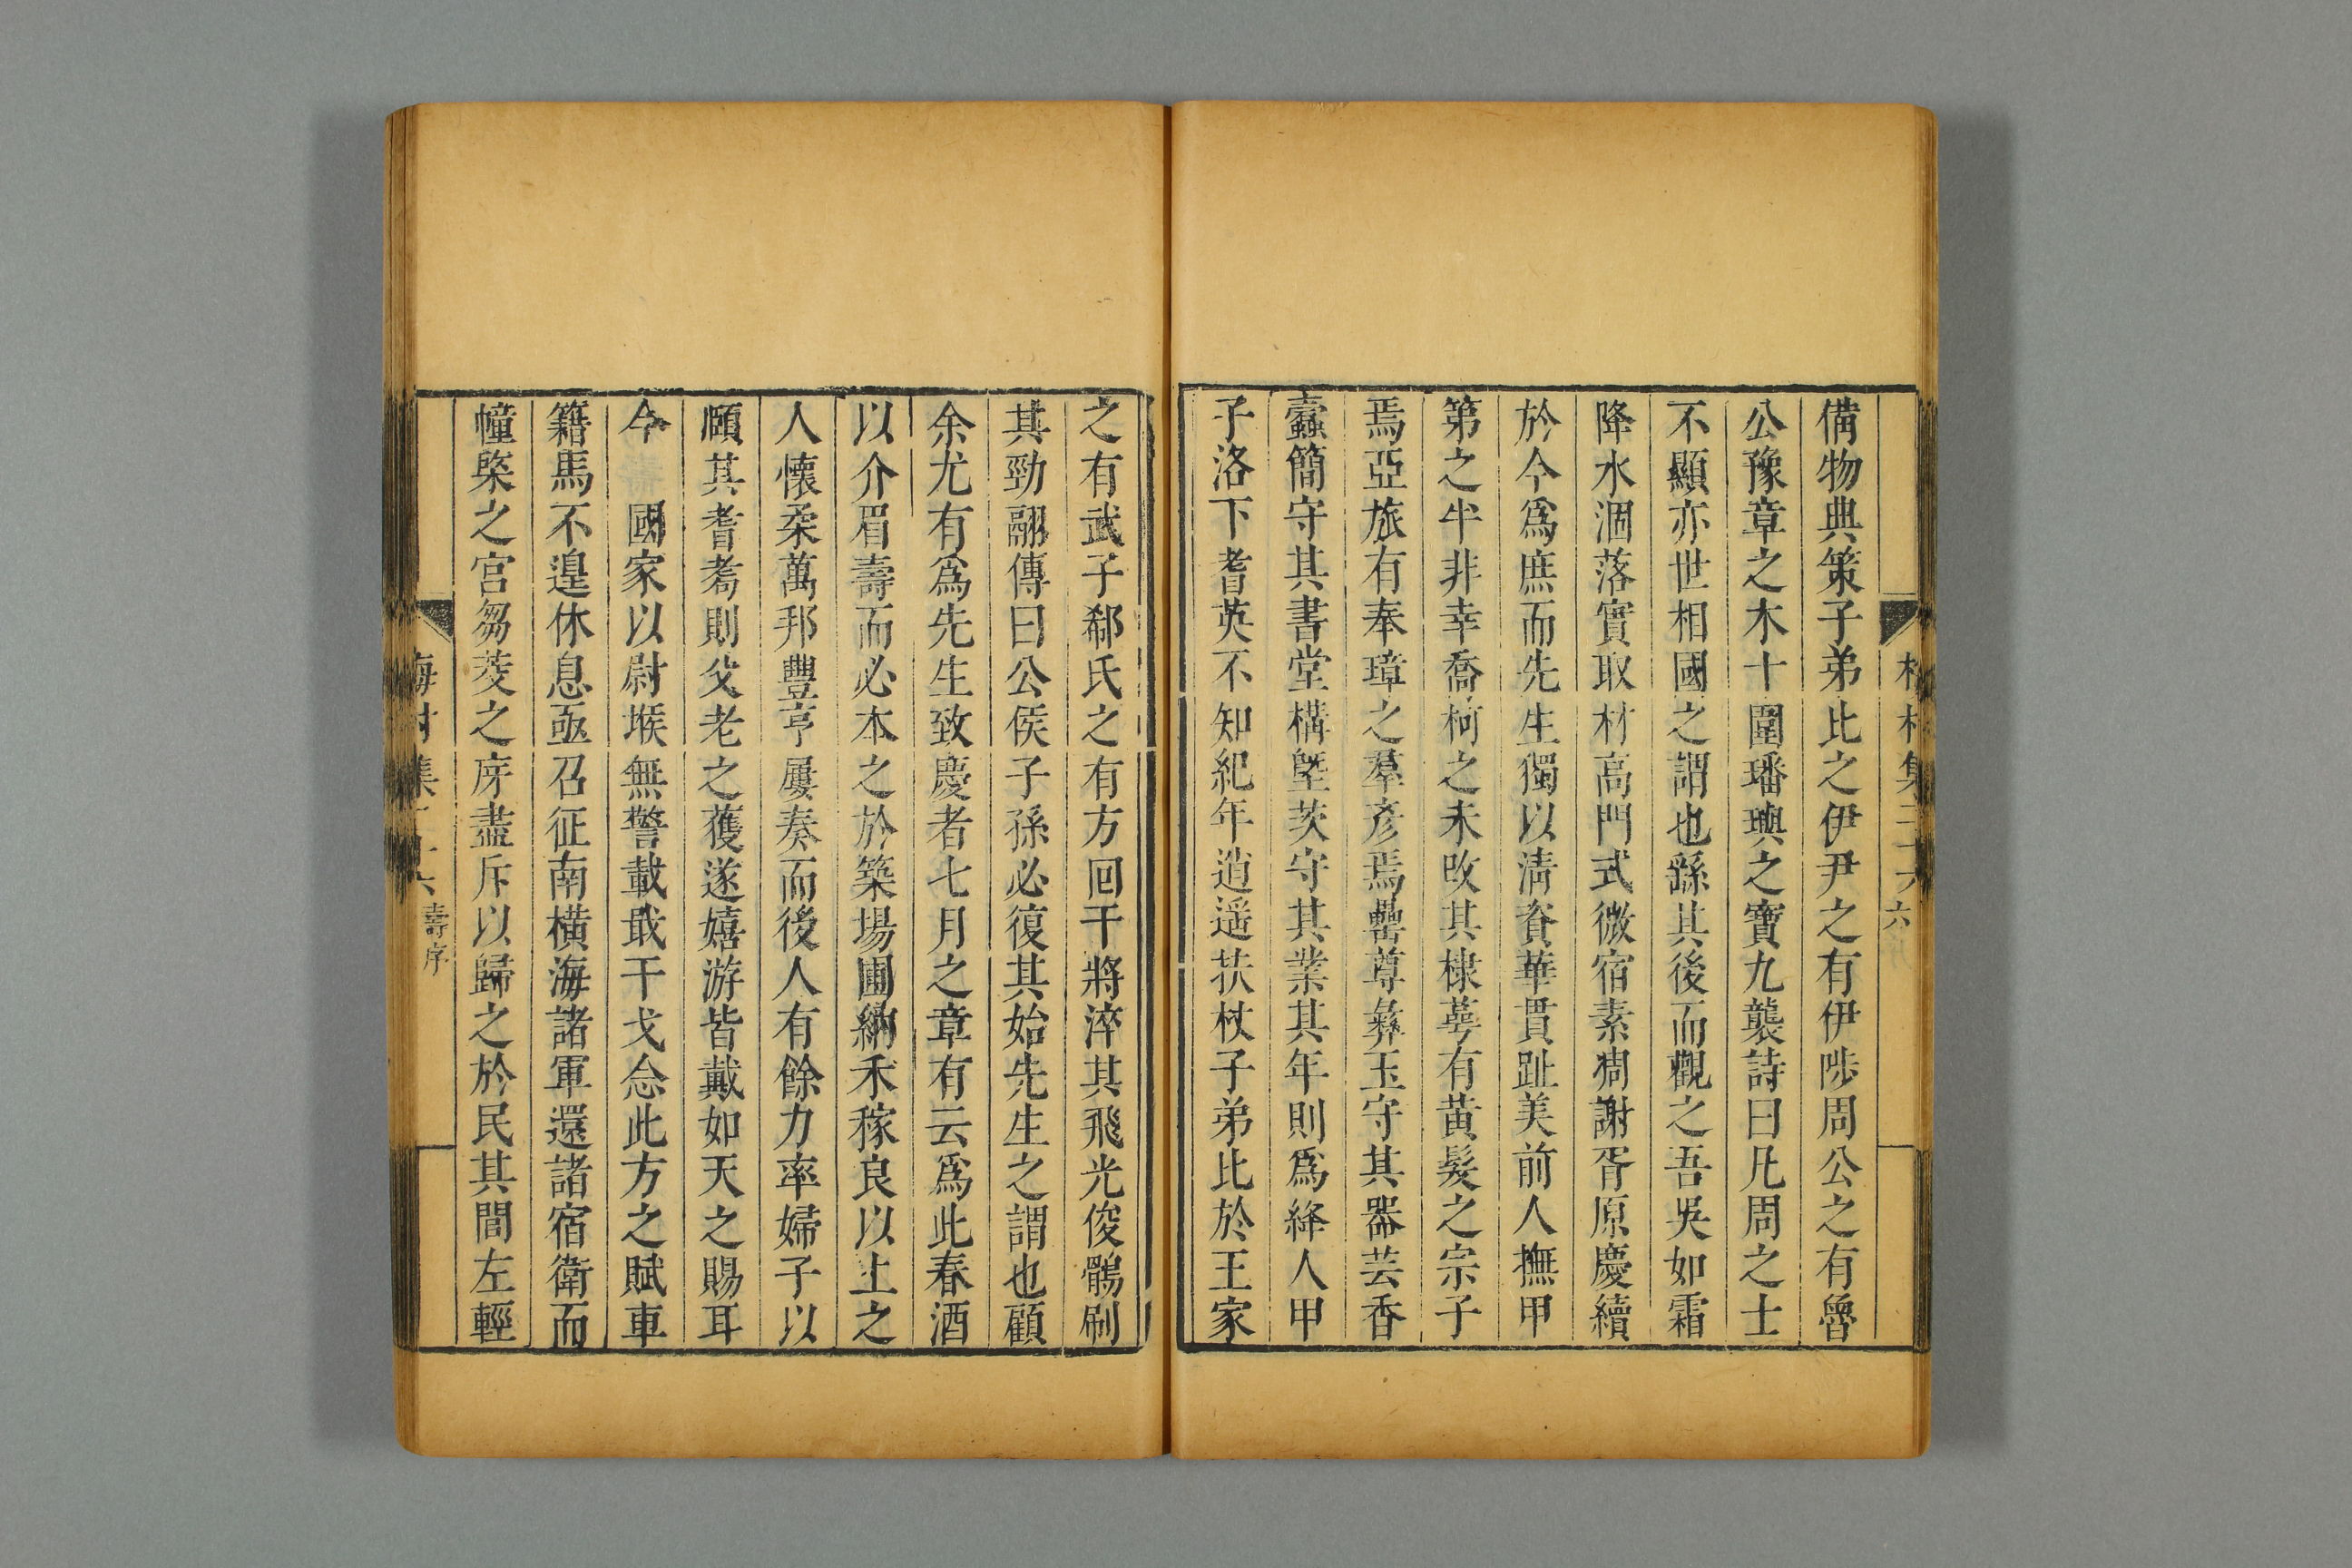 備物典策子弟比之伊尹之有伊陟周公之有魯
公豫章之木十圍璠璵之寶九襲詩曰凡周之士
不顯亦世相國之謂也繇其後而觀之吾吳如霜
降水涸落實取材高門式微宿素凋謝胥原慶續
於今爲庶而先生獨以清資華貫趾美前人撫甲
第之半非幸喬柯之未改其棣萼有黃髮之宗子
焉亞旅有奉璋之羣彥焉罍尊彝玉守其器芸香
蠹簡守其書堂構塈茨守其業其年則爲絳人甲
子洛下耆英不知紀年逍遥扶杖子弟比於王家
之有武子郗氏之有方回干將淬其飛光俊鶻刷
其勁翮傳曰公侯子孫必復其始先生之謂也顧
余尤有爲先生致慶者七月之章有云爲此春酒
以介眉壽而必本之於築場圃納禾稼良以上之
人懷柔萬邦豐亨屢奏而後人有餘力率婦子以
頤其耆耈則父老之獲遂嬉游皆戴如天之賜耳
今 國家以尉堠無警載戢干戈念此方之賦車
籍馬不遑休息亟召征南橫海諸軍還諸宿衛而
幢棨之宮芻茭之庌盡斥以歸之於民其間左輕
梅村集二十六 壽序
六